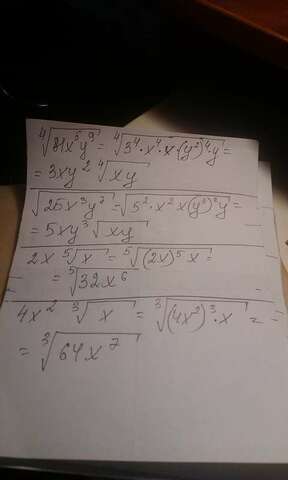 ⁴√(81x⁵y⁹) = ⁴√(3⁴·x⁴·x·(y²)⁴·y) =
= 3xy² ⁴√(xy)
√(25x³y⁷) = √(5²·x²x(y³)²y) =
= 5xy³√(xy)
2x ⁵√x = ⁵√((2x)⁵x) =
= ⁵√(32x⁶)
4x² ³√x = ³√((4x²)³·x) =
= ³√(64x⁷)